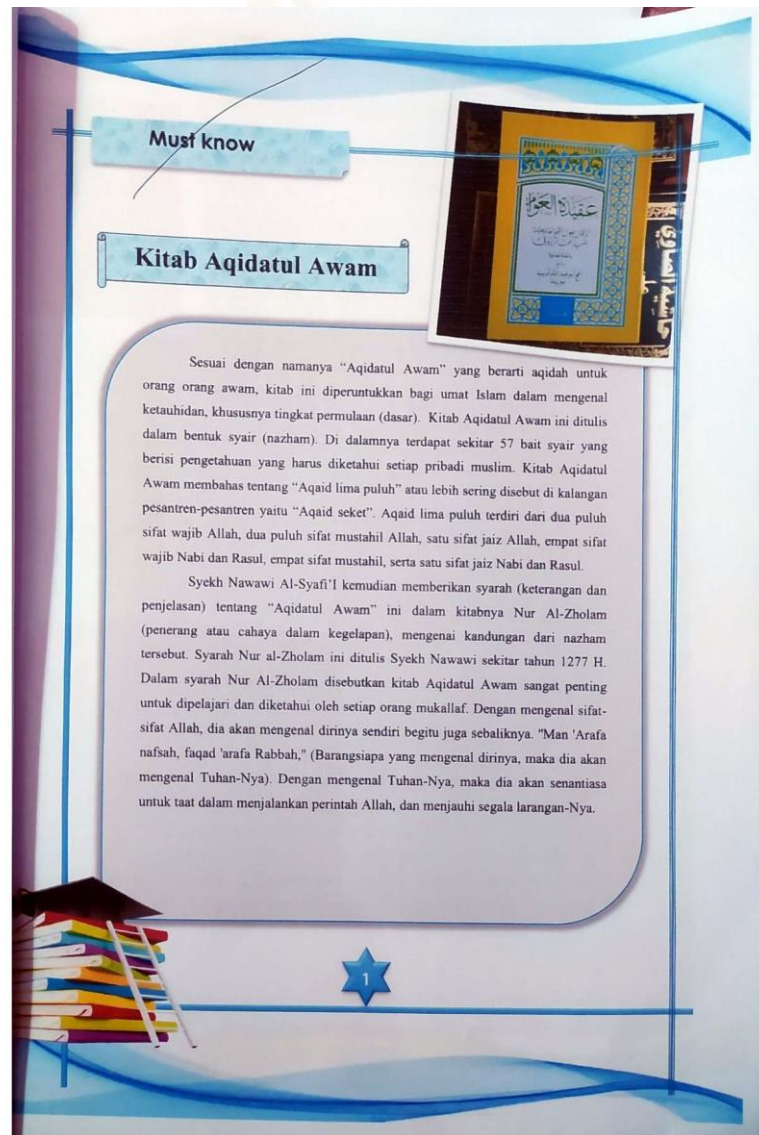 Must know
عقيدة العوام
حاشية الصاوي
Kitab Aqidatul Awam
Sesuai dengan namanya “Aqidatul Awam” yang berarti aqidah untuk
orang orang awam, kitab ini diperuntukkan bagi umat Islam dalam mengenal
ketauhidan, khususnya tingkat permulaan (dasar). Kitab Aqidatul Awam ini ditulis
dalam bentuk syair (nazham). Di dalamnya terdapat sekitar 57 bait syair yang
berisi pengetahuan yang harus diketahui setiap pribadi muslim. Kitab Aqidatul
Awam membahas tentang “Aqaid lima puluh” atau lebih sering disebut di kalangan
pesantren-pesantren yaitu “Aqaid seket”. Aqaid lima puluh terdiri dari dua puluh
sifat wajib Allah, dua puluh sifat mustahil Allah, satu sifat jaiz Allah, empat sifat
wajib Nabi dan Rasul, empat sifat mustahil, serta satu sifat jaiz Nabi dan Rasul.
Syekh Nawawi Al-Syafi’I kemudian memberikan syarah (keterangan dan
penjelasan) tentang “Aqidatul Awam” ini dalam kitabnya Nur Al-Zholam
(penerang atau cahaya dalam kegelapan), mengenai kandungan dari nazham
tersebut. Syarah Nur al-Zholam ini ditulis Syekh Nawawi sekitar tahun 1277 H.
Dalam syarah Nur Al-Zholam disebutkan kitab Aqidatul Awam sangat penting
untuk dipelajari dan diketahui oleh setiap orang mukallaf. Dengan mengenal sifat-
sifat Allah, dia akan mengenal dirinya sendiri begitu juga sebaliknya. "Man 'Arafa
nafsah, faqad 'arafa Rabbah," (Barangsiapa yang mengenal dirinya, maka dia akan
mengenal Tuhan-Nya). Dengan mengenal Tuhan-Nya, maka dia akan senantiasa
untuk taat dalam menjalankan perintah Allah, dan menjauhi segala larangan-Nya.
1